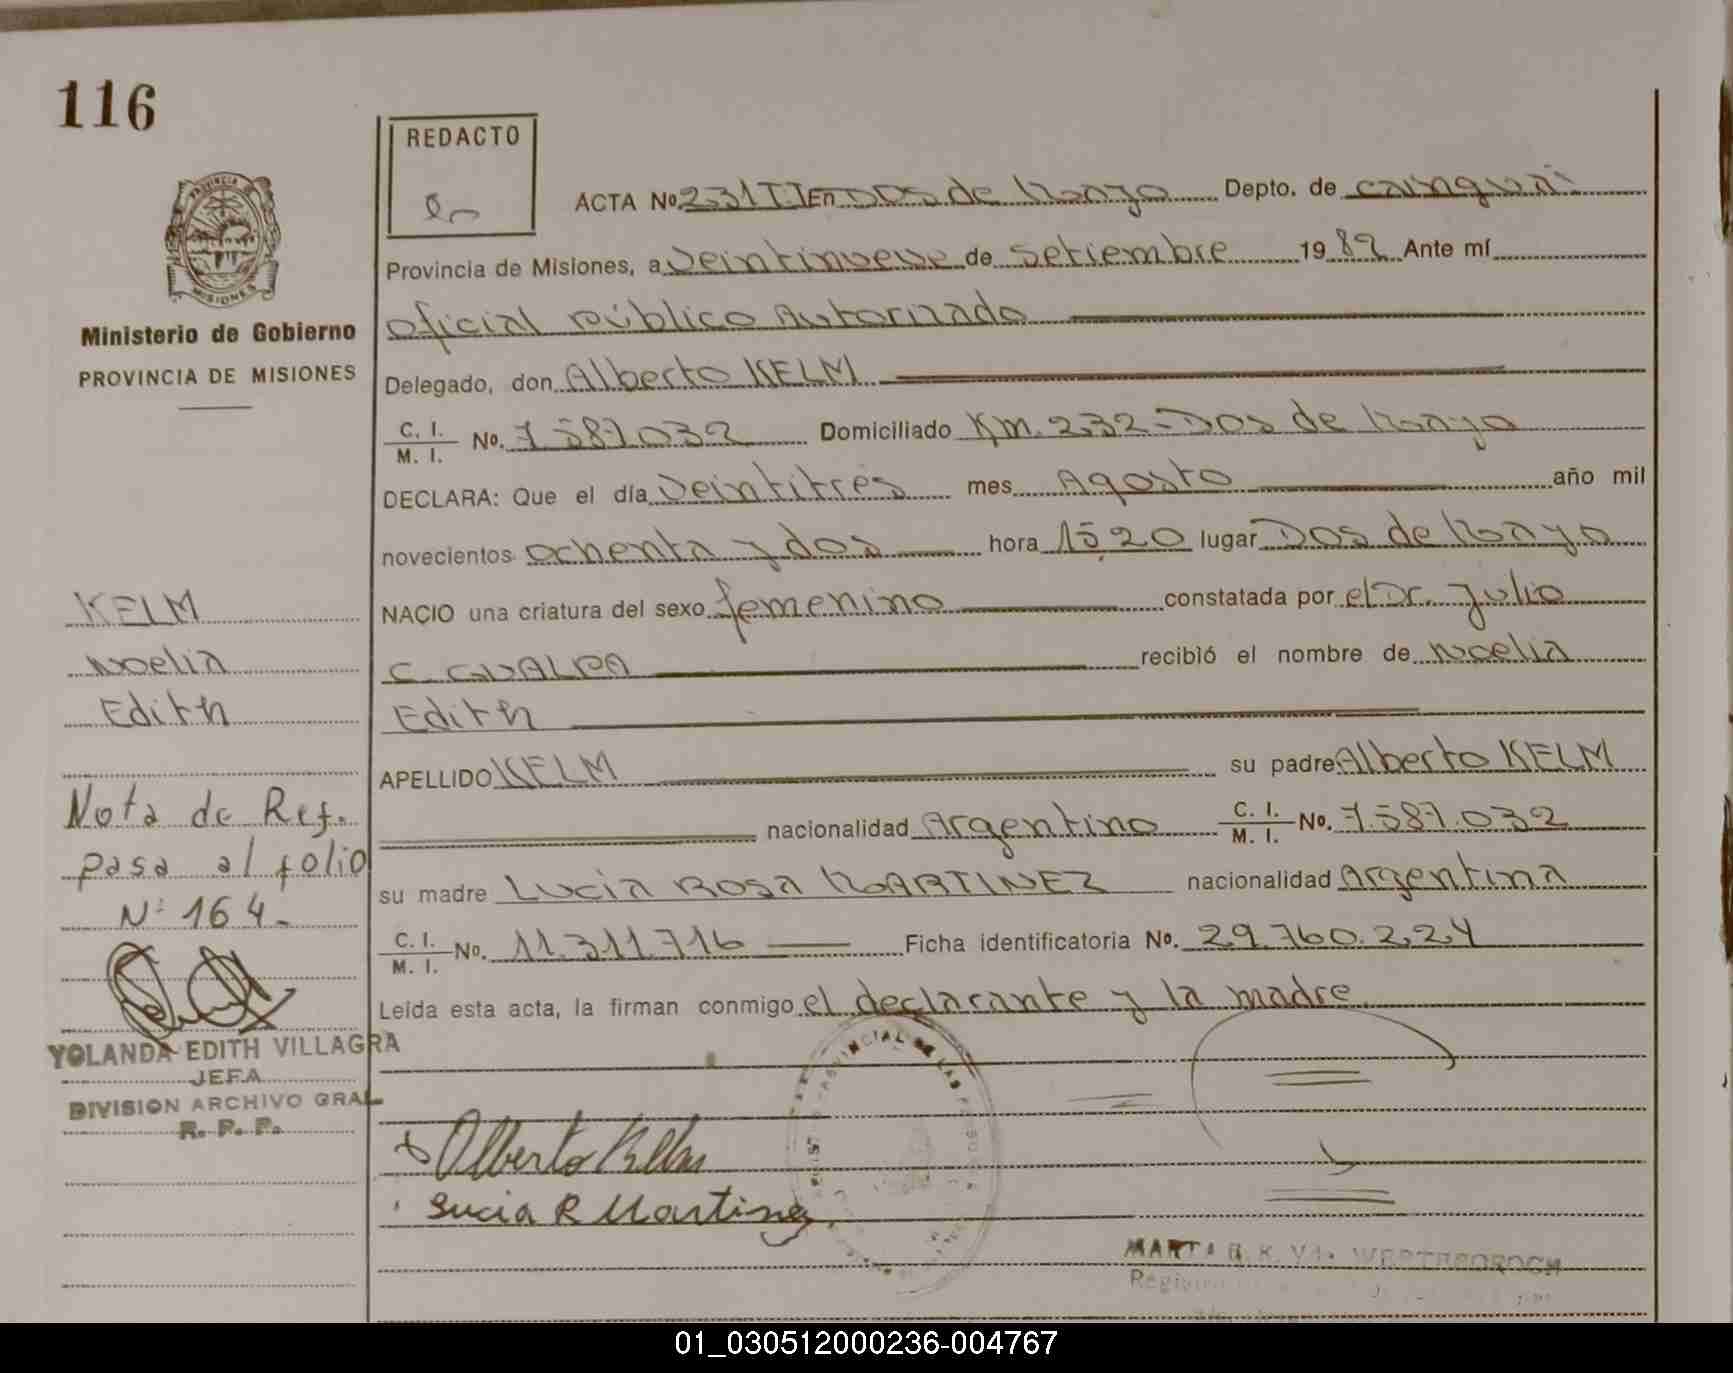 116
REDACTO
PROVINCIA DE
MISIONES
Ministerio de Gobierno
PROVINCIA DE MISIONES
ACTA No 231TI En DOS de Mayo Depto. de cainguas
Provincia de Misiones, a veintinueve de setiembre 1982 Ante mí
oficial público Autorizado
Delegado, don Alberto KELM
C. I. / M. I. No. 7.587.032 Domiciliado Km. 232 - Dos de Mayo
DECLARA: Que el día veintitrés mes Agosto año mil
novecientos ochenta y dos hora 15,20 lugar Dos de Mayo
NACIO una criatura del sexo femenino constatada por el Dr. Julio
C. GUALPA recibió el nombre de Noelia
Edith
APELLIDO KELM su padre Alberto KELM
nacionalidad Argentino C. I. / M. I. No. 7.587.032
su madre Lucia Rosa MARTINEZ nacionalidad Argentina
C. I. / M. I. No. 11.311.716 Ficha identificatoria No. 29.760.224
Leída esta acta, la firman conmigo el declarante y la madre
KELM
Noelia
Edith
Nota de Ref.
pasa al folio
Nº 164.-
YOLANDA EDITH VILLAGRA
JEFA
DIVISION ARCHIVO GRAL
R. P. P.
Alberto Kelm
Lucia R Martinez
PROVINCIAL DE LAS
MARTA
01_030512000236-004767